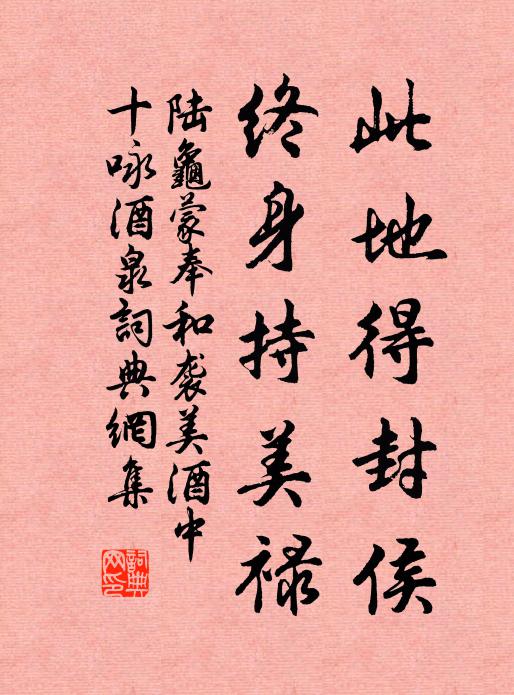 此地得封侯
终身持美禄
陆龜蒙奉和袭美酒中
十咏酒泉詞典網集
詞典
网印